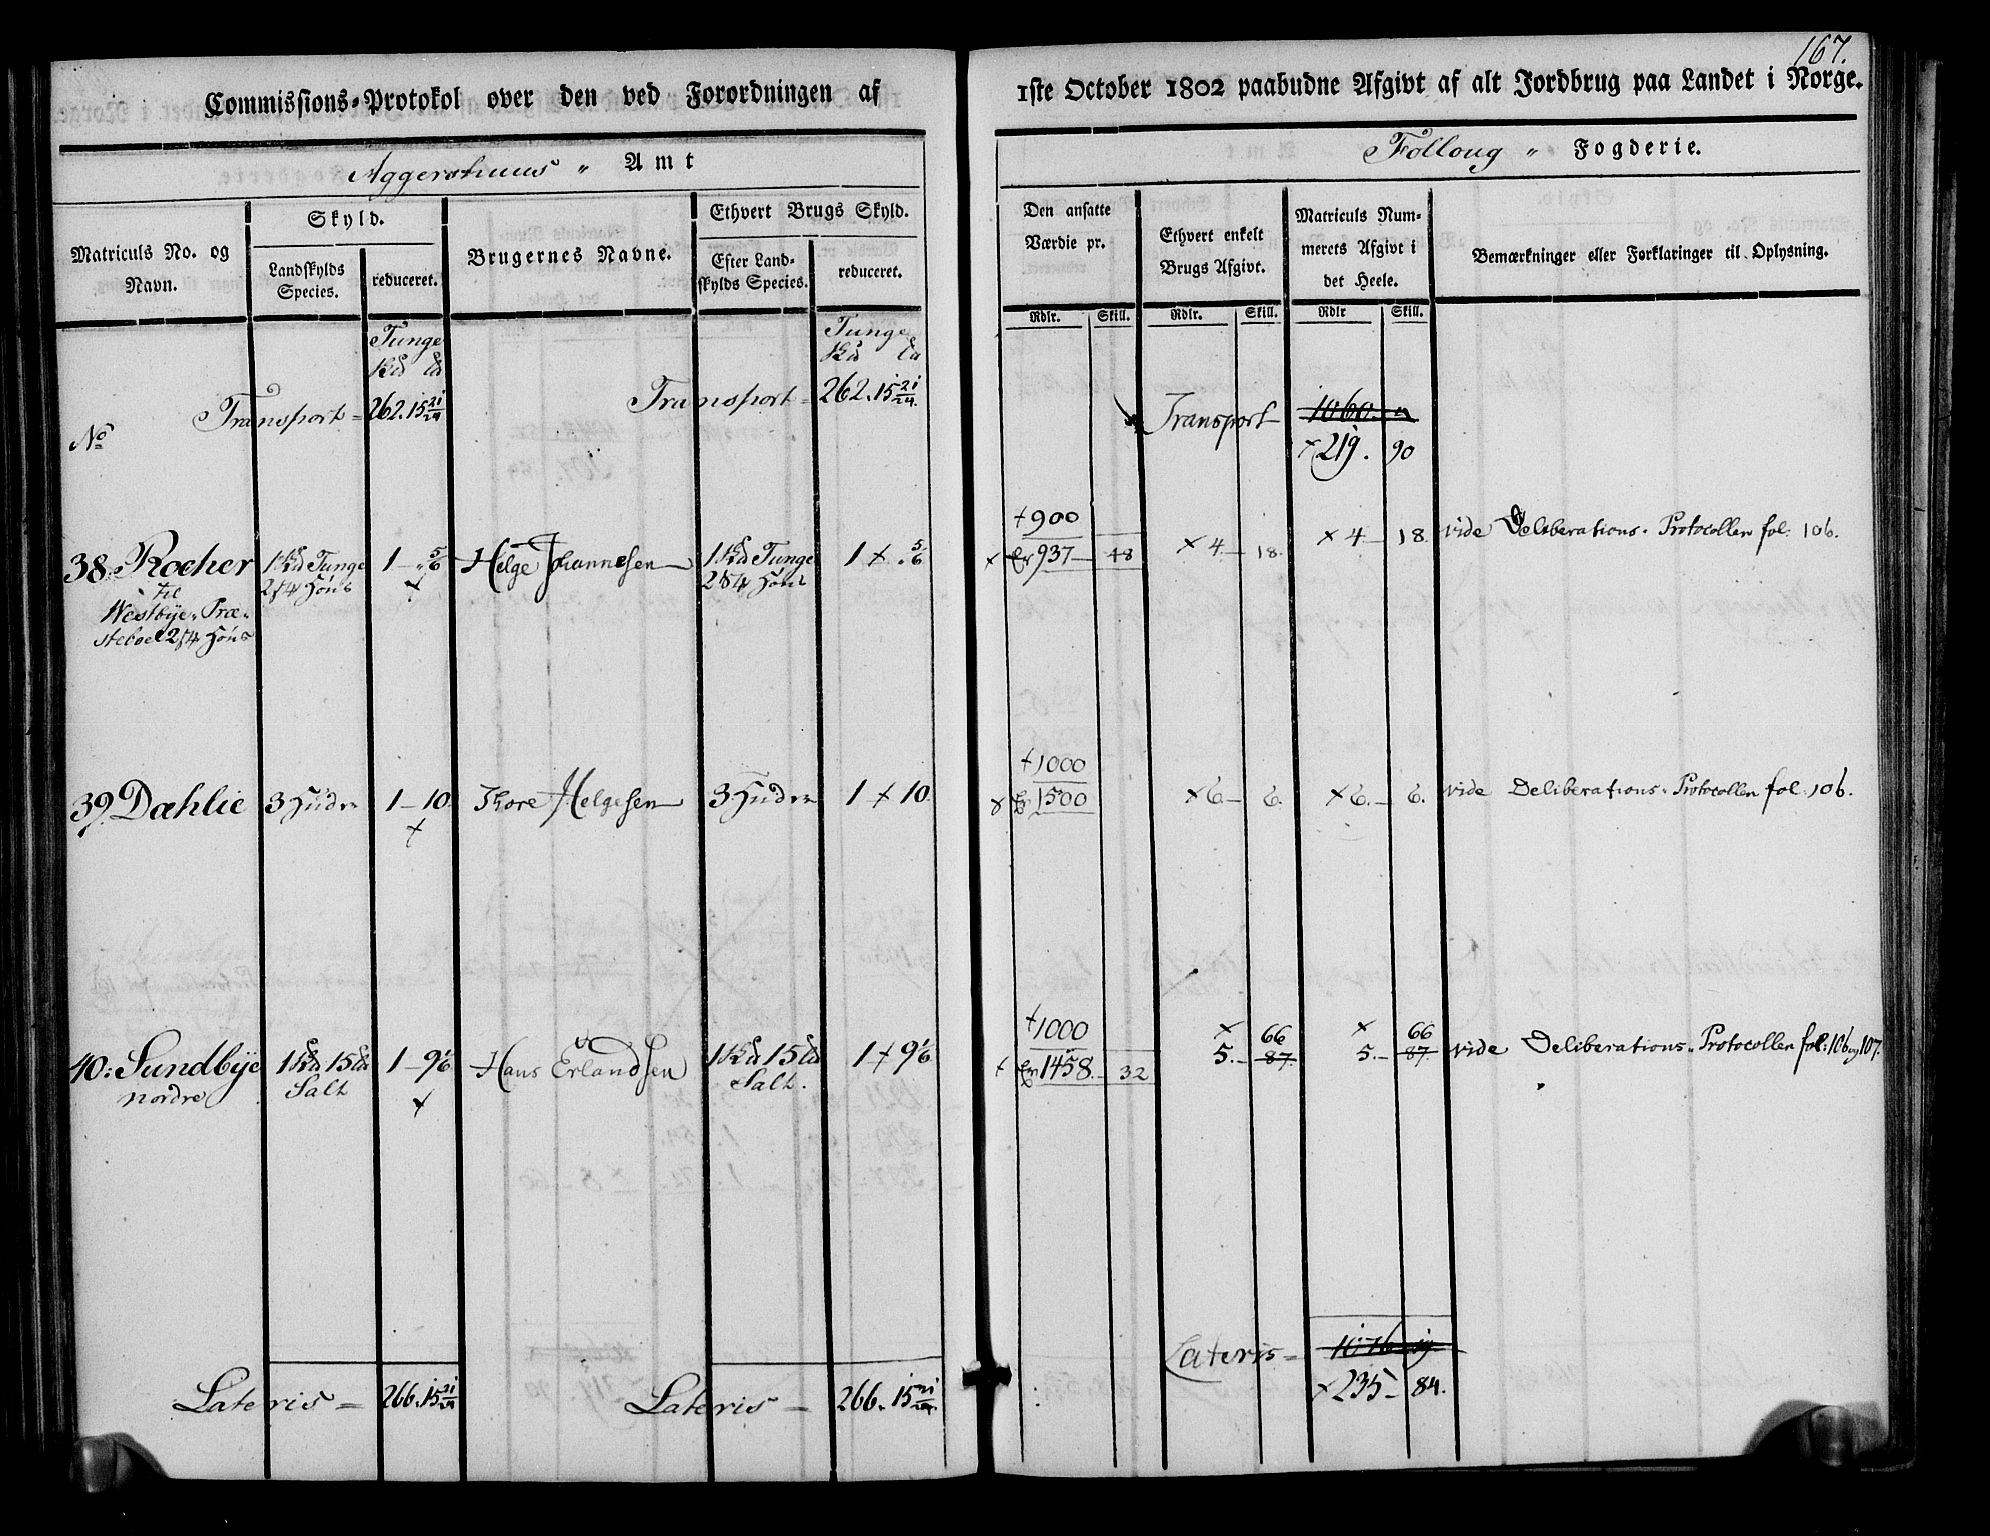 167.
Commissions-Protokol over den ved Forordningen af
1ste October 1802 paabudne Afgivt af alt Jordbrug paa Landet i Norge.
Aggershuus " Amt
Follong " Fogderie.
Matriculs No. og Navn.
Skyld.
Landskylds Species.
reduceret.
Brugernes Navne.
Ethvert Brugs Skyld.
Efter Landskylds Species.
reduceret.
Den ansatte Værdie pr.
Ethvert enkelt Brugs Afgivt.
Matriculs Nummerets Afgivt i det Heele.
Bemærkninger eller Forklaringer til Oplysning.
Rdlr. Skill. Rdlr. Skill. Rdlr Skill.
Tunge
Tunge
No
Transport = 262. 15 21/24
Transport = 262. 15 21/24.
Transport 1060.
× 219. 90
+ 900
38: Rocher 1 Tunge 1 - " 5/6 Helge Johannesen 1 Tunge 1 + " 5/6 × 937 - 48 × 4 - 18. × 4 - 18. vide Deliberations-Protocollen fol: 106.
til
Westbye Præ-
steboel
+ 1000
39. Dæhlie 3 Huder 1 - 10. Thore Helgesen 3 Huder 1 + 10. × 1500 × 6 - 6. × 6. - 6. vide Deliberations-Protocollen fol: 106.
+ 1000
× 66 × 66
40: Sundbye 1 15 1 - 9 1/6 Hans Erlandsen 1 15 1 + 9 1/6 1458. - 32 5. - 87. 5. - 87. vide Deliberations-Protocollen fol: 106 og 107.
nordre Salt Salt.
Lateris = 266. 15 21/24
Lateris = 266. 15 21/24.
Lateris = 1076
× 235 - 84.